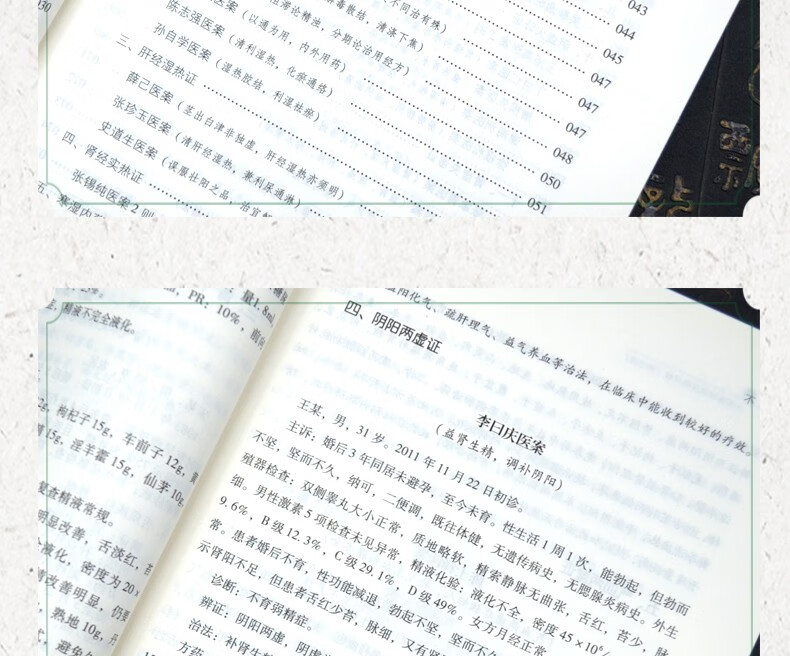 030
043
044
同治有殊）
毒散结，清涤下焦）
045
滞论精浊，分期论治用经方）
047
陈志强医案（以通为用，内外用药）
047
孙自学医案（清利湿热，化瘀通络）
047
三、肝经湿热证
048
薛己医案（湿热胶结，利湿祛瘀）
050
张珍玉医案（茎出白津非独虚，肝经湿热亦须明）
051
史道生医案（清肝经湿热，兼利尿通淋）
四、肾经实热证
张锡纯医案2则（误服壮阳之品，治宜
五、寒湿内
量1.8ml
PR：10%，前向
精液不完全液化。
枸杞子15g，车前子12g，黄
15g，淫羊藿15g，仙茅10g
复查精液常规。
明显改善，舌淡红，苔
液化，密度为20×
情改善明显，仍要
熟地10g，丹
避免
阳化气、疏肝理气、益气养血等治法，在临床中能收到较好的疗效。
不
四、阴阳两虚证
李曰庆医案
（益肾生精，调补阴阳）
王某，男，31岁。2011年11月22日初诊。
主诉：婚后3年同居未避孕，至今未育。性生活1周1次，能勃起，但勃而
不坚，坚而不久，纳可，二便调，既往体健，无遗传病史，无腮腺炎病史。外生
殖器检查：双侧睾丸大小正常，质地略软，精索静脉无曲张，舌红，苔少，脉
细。男性激素5项检查未见异常，精液化验：液化不全，密度45×10⁶/
9.6%，B级12.3%，C级29.1%，D级49%。女方月经正常
常。患者婚后不育，性功能减退，勃起不坚，坚而不久
示肾阳不足，但患者舌红少苔，脉细，又有肾
诊断：不育弱精症。
辨证：阴阳两虚，阴虚
治法：补肾生精
方药